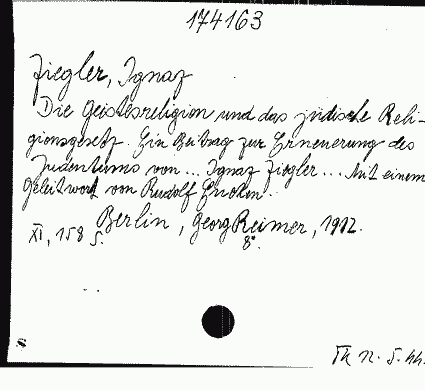 174163
Ziegler, Ignaz
Die Geistesreligion und das jüdische Reli-
gionsgesetz. Ein Beitrag zur Erneuerung des
Judentums von ... Ignaz Ziegler ... Mit einem
Geleitwort von Rudolf Eucken.
Berlin, Georg Reimer, 1912.
XI, 158 S. 8°.
s
Th N. 5.